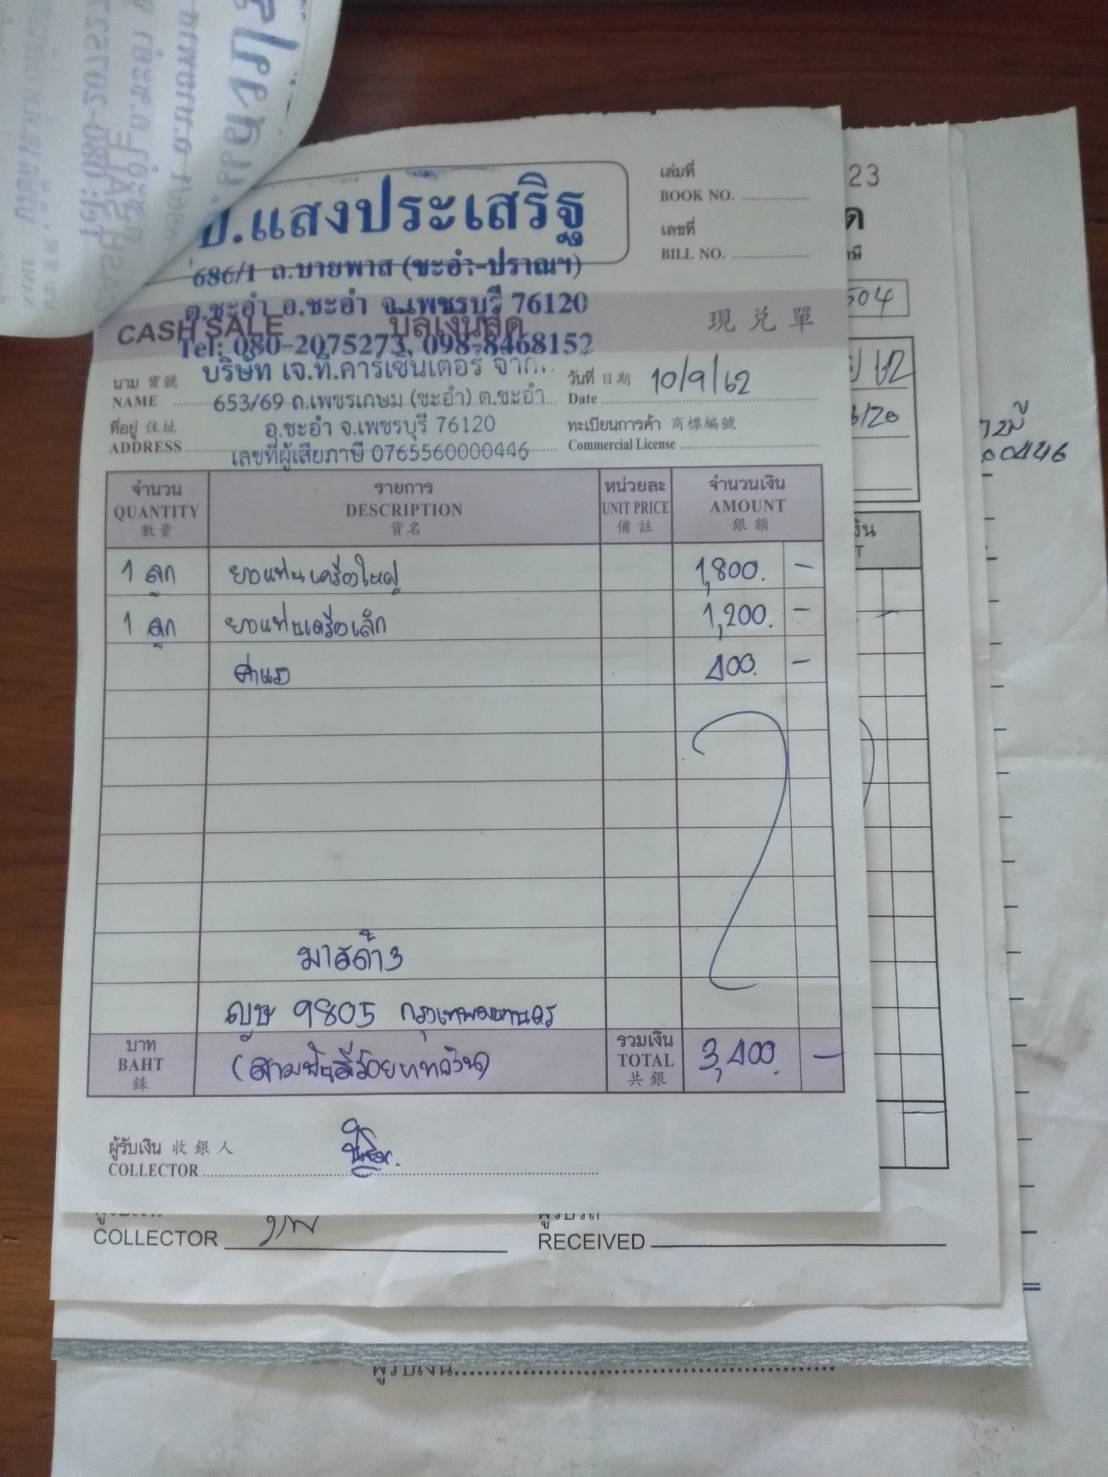 ป.แสงประเสริฐ
686/1 ถ.บายพาส (ชะอำ-ปราณฯ)
ต.ชะอำ อ.ชะอำ จ.เพชรบุรี 76120
Tel: 080-2075273, 098-8468152
เล่มที่
BOOK NO.
เลขที่
BILL NO.
CASH SALE บิลเงินสด 現兑單
นาม 寳號
NAME
บริษัท เจ.ที.คาร์เซ็นเตอร์ จำก..
653/69 ถ.เพชรเกษม (ชะอำ) ต.ชะอำ
วันที่ 日期 10/9/62
Date
ที่อยู่ 住址
ADDRESS
อ.ชะอำ จ.เพชรบุรี 76120
เลขที่ผู้เสียภาษี 0765560000446
ทะเบียนการค้า 商標編號
Commercial License
จำนวน รายการ หน่วยละ จำนวนเงิน
QUANTITY DESCRIPTION UNIT PRICE AMOUNT
數量 貨名 備註 銀額
1 ลูก ยางแท่นเครื่องใหญ่ 1,800. -
1 ลูก ยางแท่นเครื่องเล็ก 1,200. -
ค่าแรง 400. -
มาสด้า3
ญษ 9805 กรุงเทพมหานคร
บาท
BAHT
銖
(สามพันสี่ร้อยบาทถ้วน)
รวมเงิน
TOTAL
共銀
3,400. -
ผู้รับเงิน 收銀人
COLLECTOR
COLLECTOR
RECEIVED
ผู้รับเงิน
23
504
62
0446